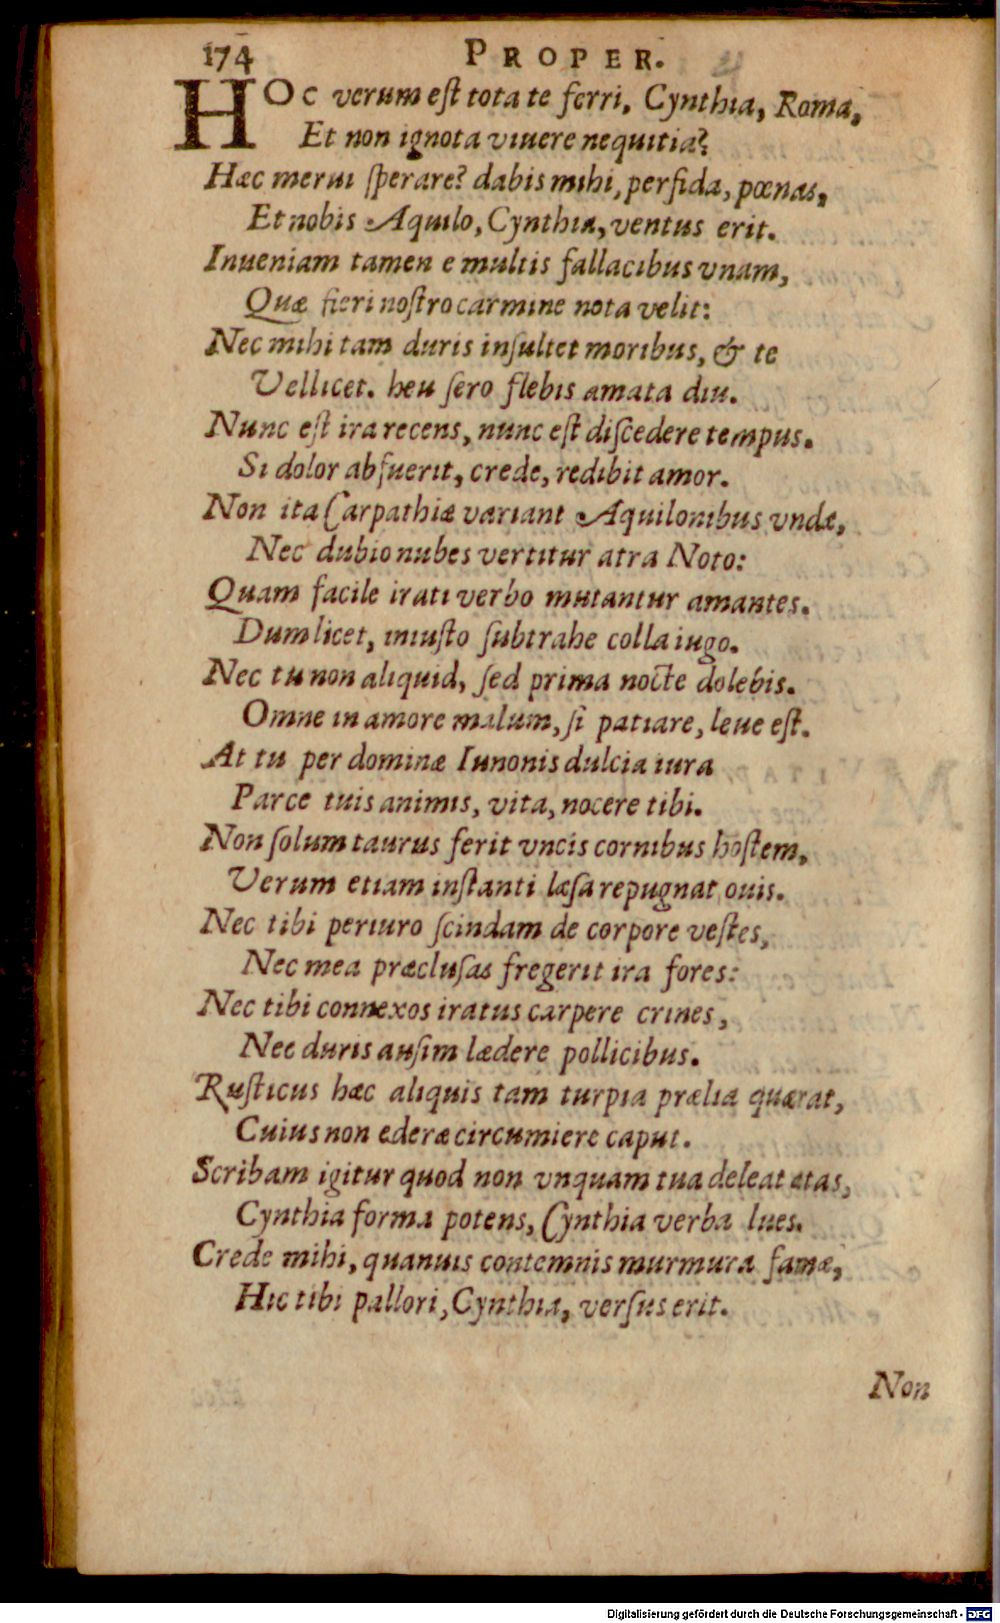 174 PROPER.
HOC verum est tota te ferri, Cynthia, Roma,
Et non ignota viuere nequitia?
Hæc merui sperare? dabis mihi, perfida, pœnas,
Et nobis Aquilo, Cynthia, ventus erit.
Inueniam tamen e multis fallacibus vnam,
Quæ fieri nostro carmine nota velit:
Nec mihi tam duris insultet moribus, & te
Vellicet. heu sero flebis amata diu.
Nunc est ira recens, nunc est discedere tempus.
Si dolor abfuerit, crede, redibit amor.
Non ita Carpathiæ variant Aquilonibus vndæ,
Nec dubio nubes vertitur atra Noto:
Quam facile irati verbo mutantur amantes.
Dum licet, iniusto subtrahe colla iugo.
Nec tu non aliquid, sed prima nocte dolebis.
Omne in amore malum, si patiare, leue est.
At tu per dominæ Iunonis dulcia iura
Parce tuis animis, vita, nocere tibi.
Non solum taurus ferit vncis cornibus hostem,
Verum etiam instanti læsa repugnat ouis.
Nec tibi periuro scindam de corpore vestes,
Nec mea præclusas fregerit ira fores:
Nec tibi connexos iratus carpere crines,
Nec duris ausim lædere pollicibus.
Rusticus hæc aliquis tam turpia prælia quærat,
Cuius non ederæ circumiere caput.
Scribam igitur quod non vnquam tua deleat ætas,
Cynthia forma potens, Cynthia verba lues.
Crede mihi, quanuis contemnis murmura famæ,
Hic tibi pallori, Cynthia, versus erit.
Non
Digitalisierung gefördert durch die Deutsche Forschungsgemeinschaft - DFG